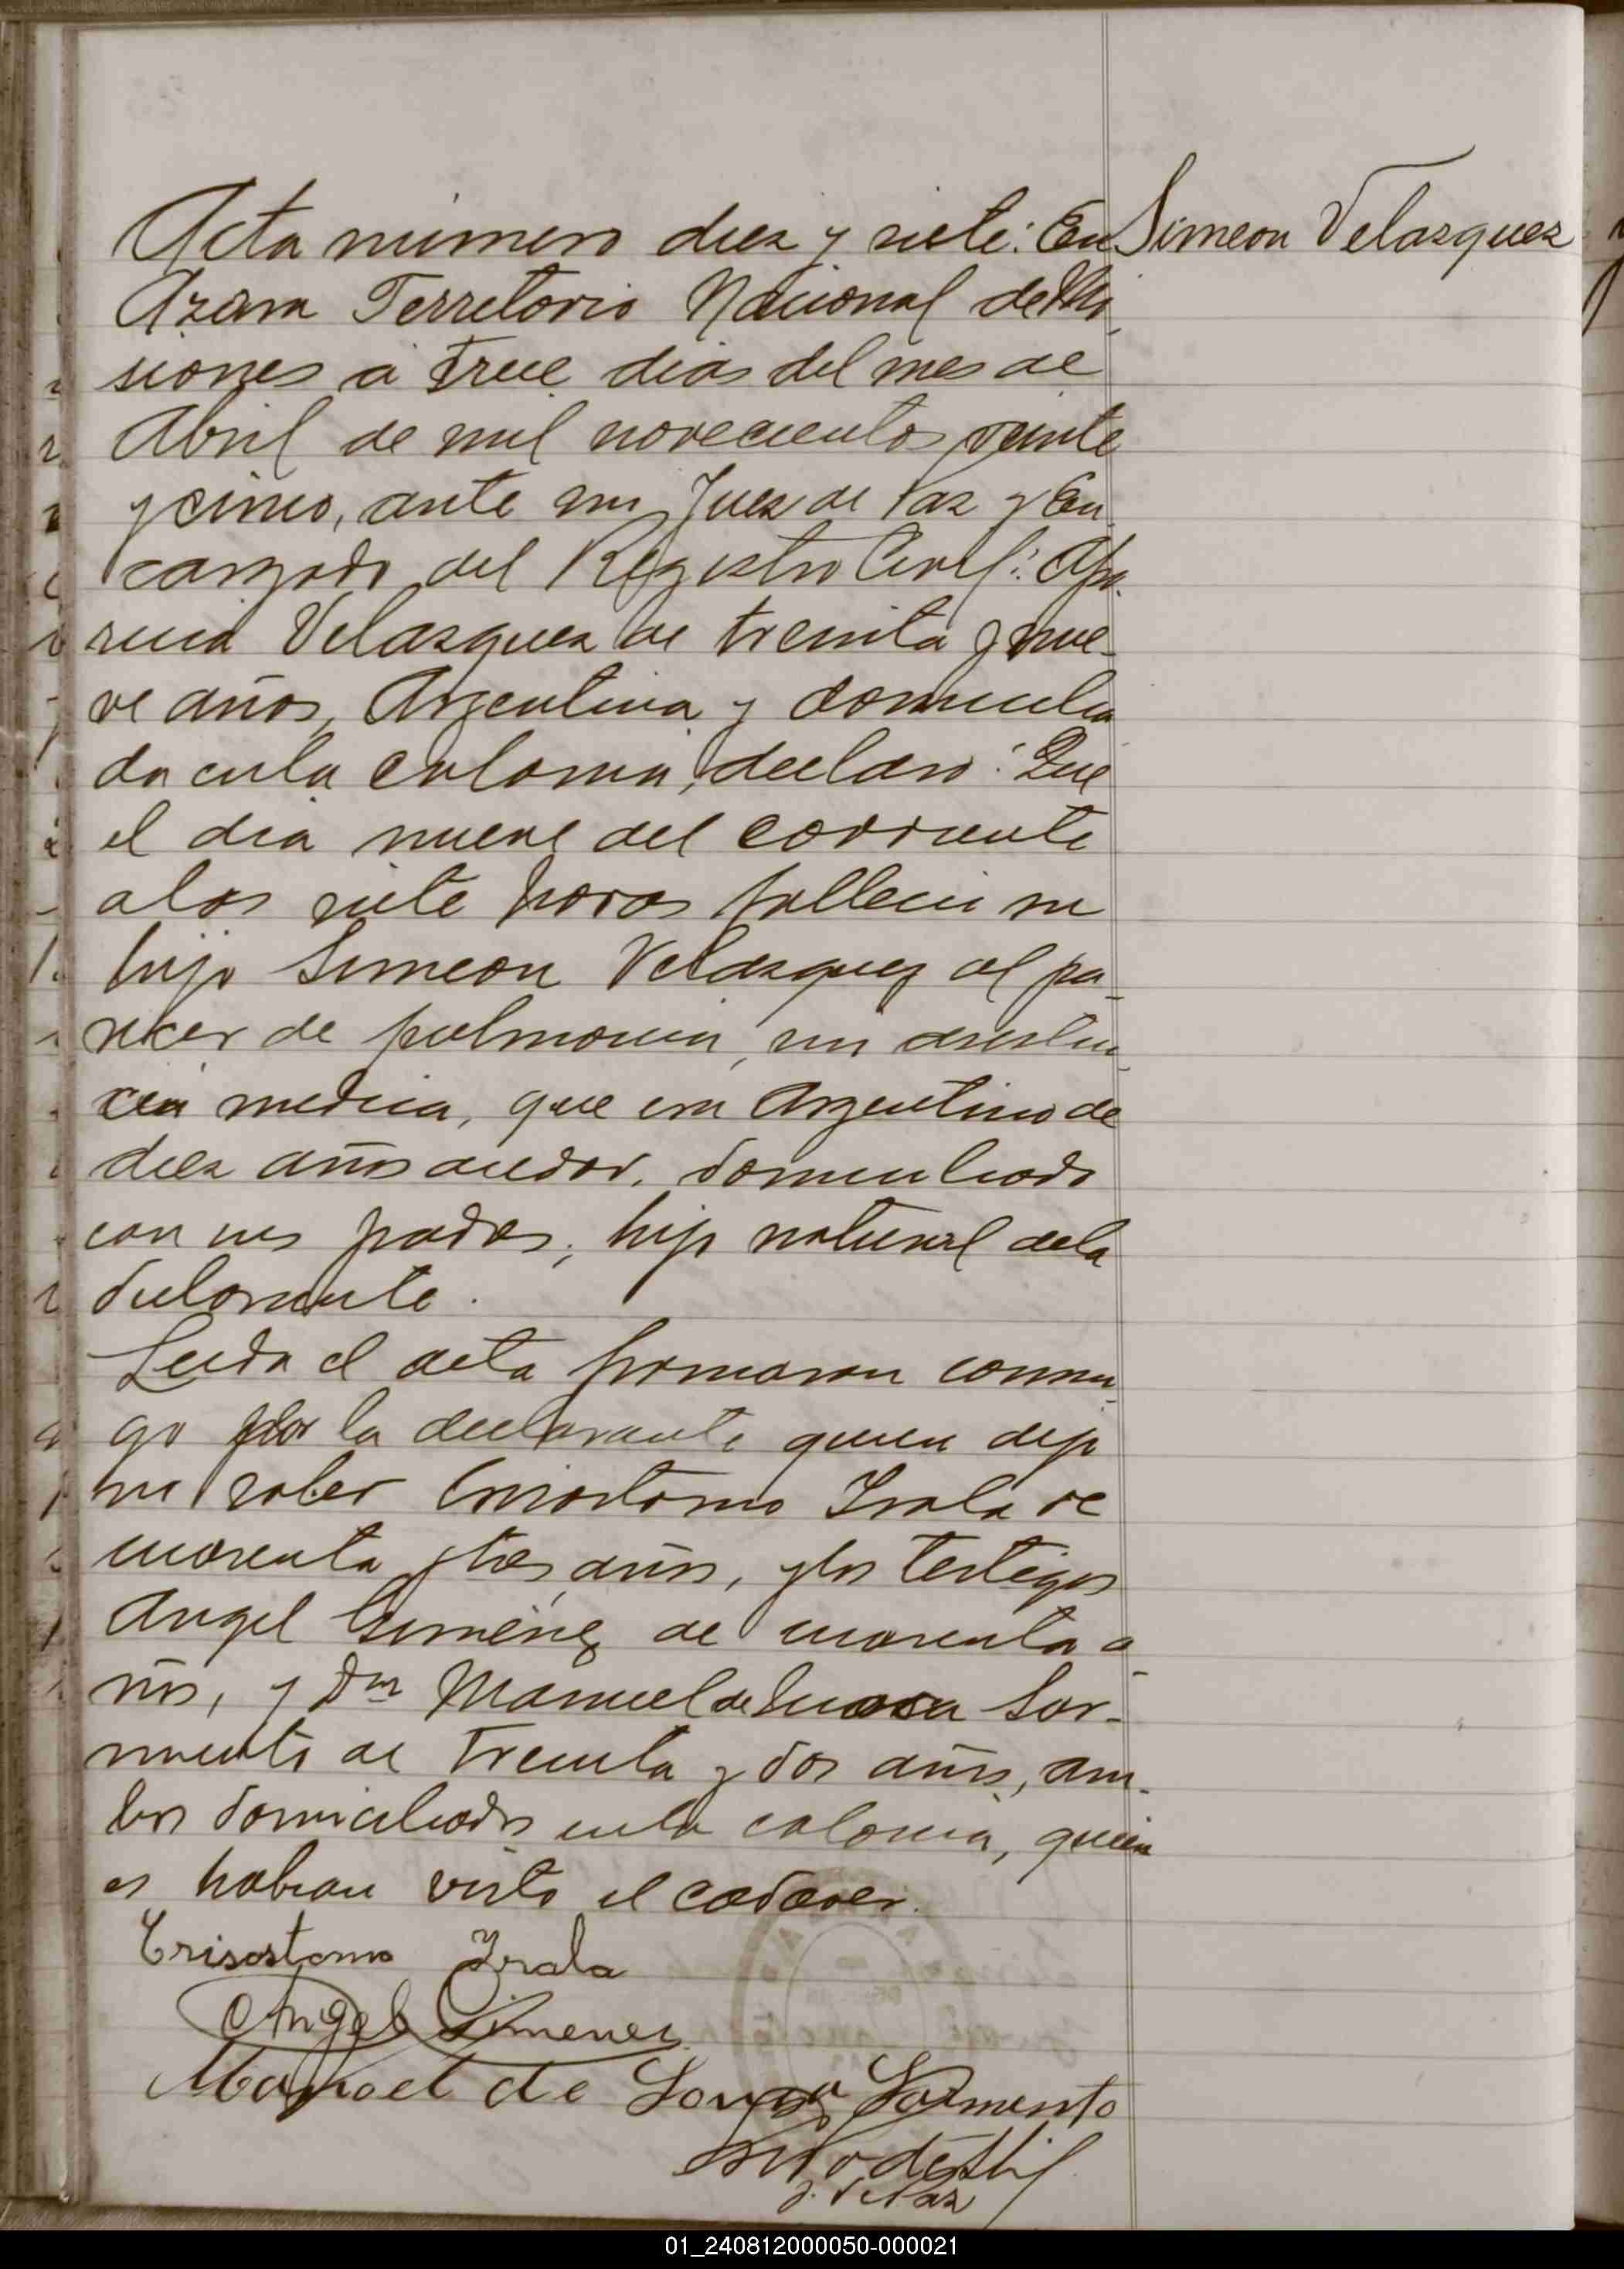 Simeon Velasquez
Acta número diez y siete: En
Azara Territorio Nacional de Mi-
siones a trece dias del mes de
Abril de mil novecientos veinte
y cinco, ante mi Juez de Paz y En-
cargado del Registro Civil: Apa-
ricia Velasquez de treinta y nue-
ve años, Argentina y domicilia
da en la colonia, declaró: Que
el dia nueve del corriente
a las siete horas falleció su
hijo Simeon Velasquez al pa-
recer de pulmonia, sin asisten-
cia medica, que era Argentino de
diez años de edad, domiciliado
con sus padres; hijo natural de la
declarante.
Leida el acta firmaron conmi-
go por la declarante quien dijo
no saber Crisostomo Irala de
cuarenta y tres años, y los testigos
Angel Giménez de cuarenta a-
ños, y Dn Manuel de Sousa Sar-
miento de treinta y dos años, am-
bos domiciliados en la colonia, quien
es habian visto el cadaver.
Crisostomo Irala
Angel Jimenez
Manoel de Souza Sarmento
J. de Paz